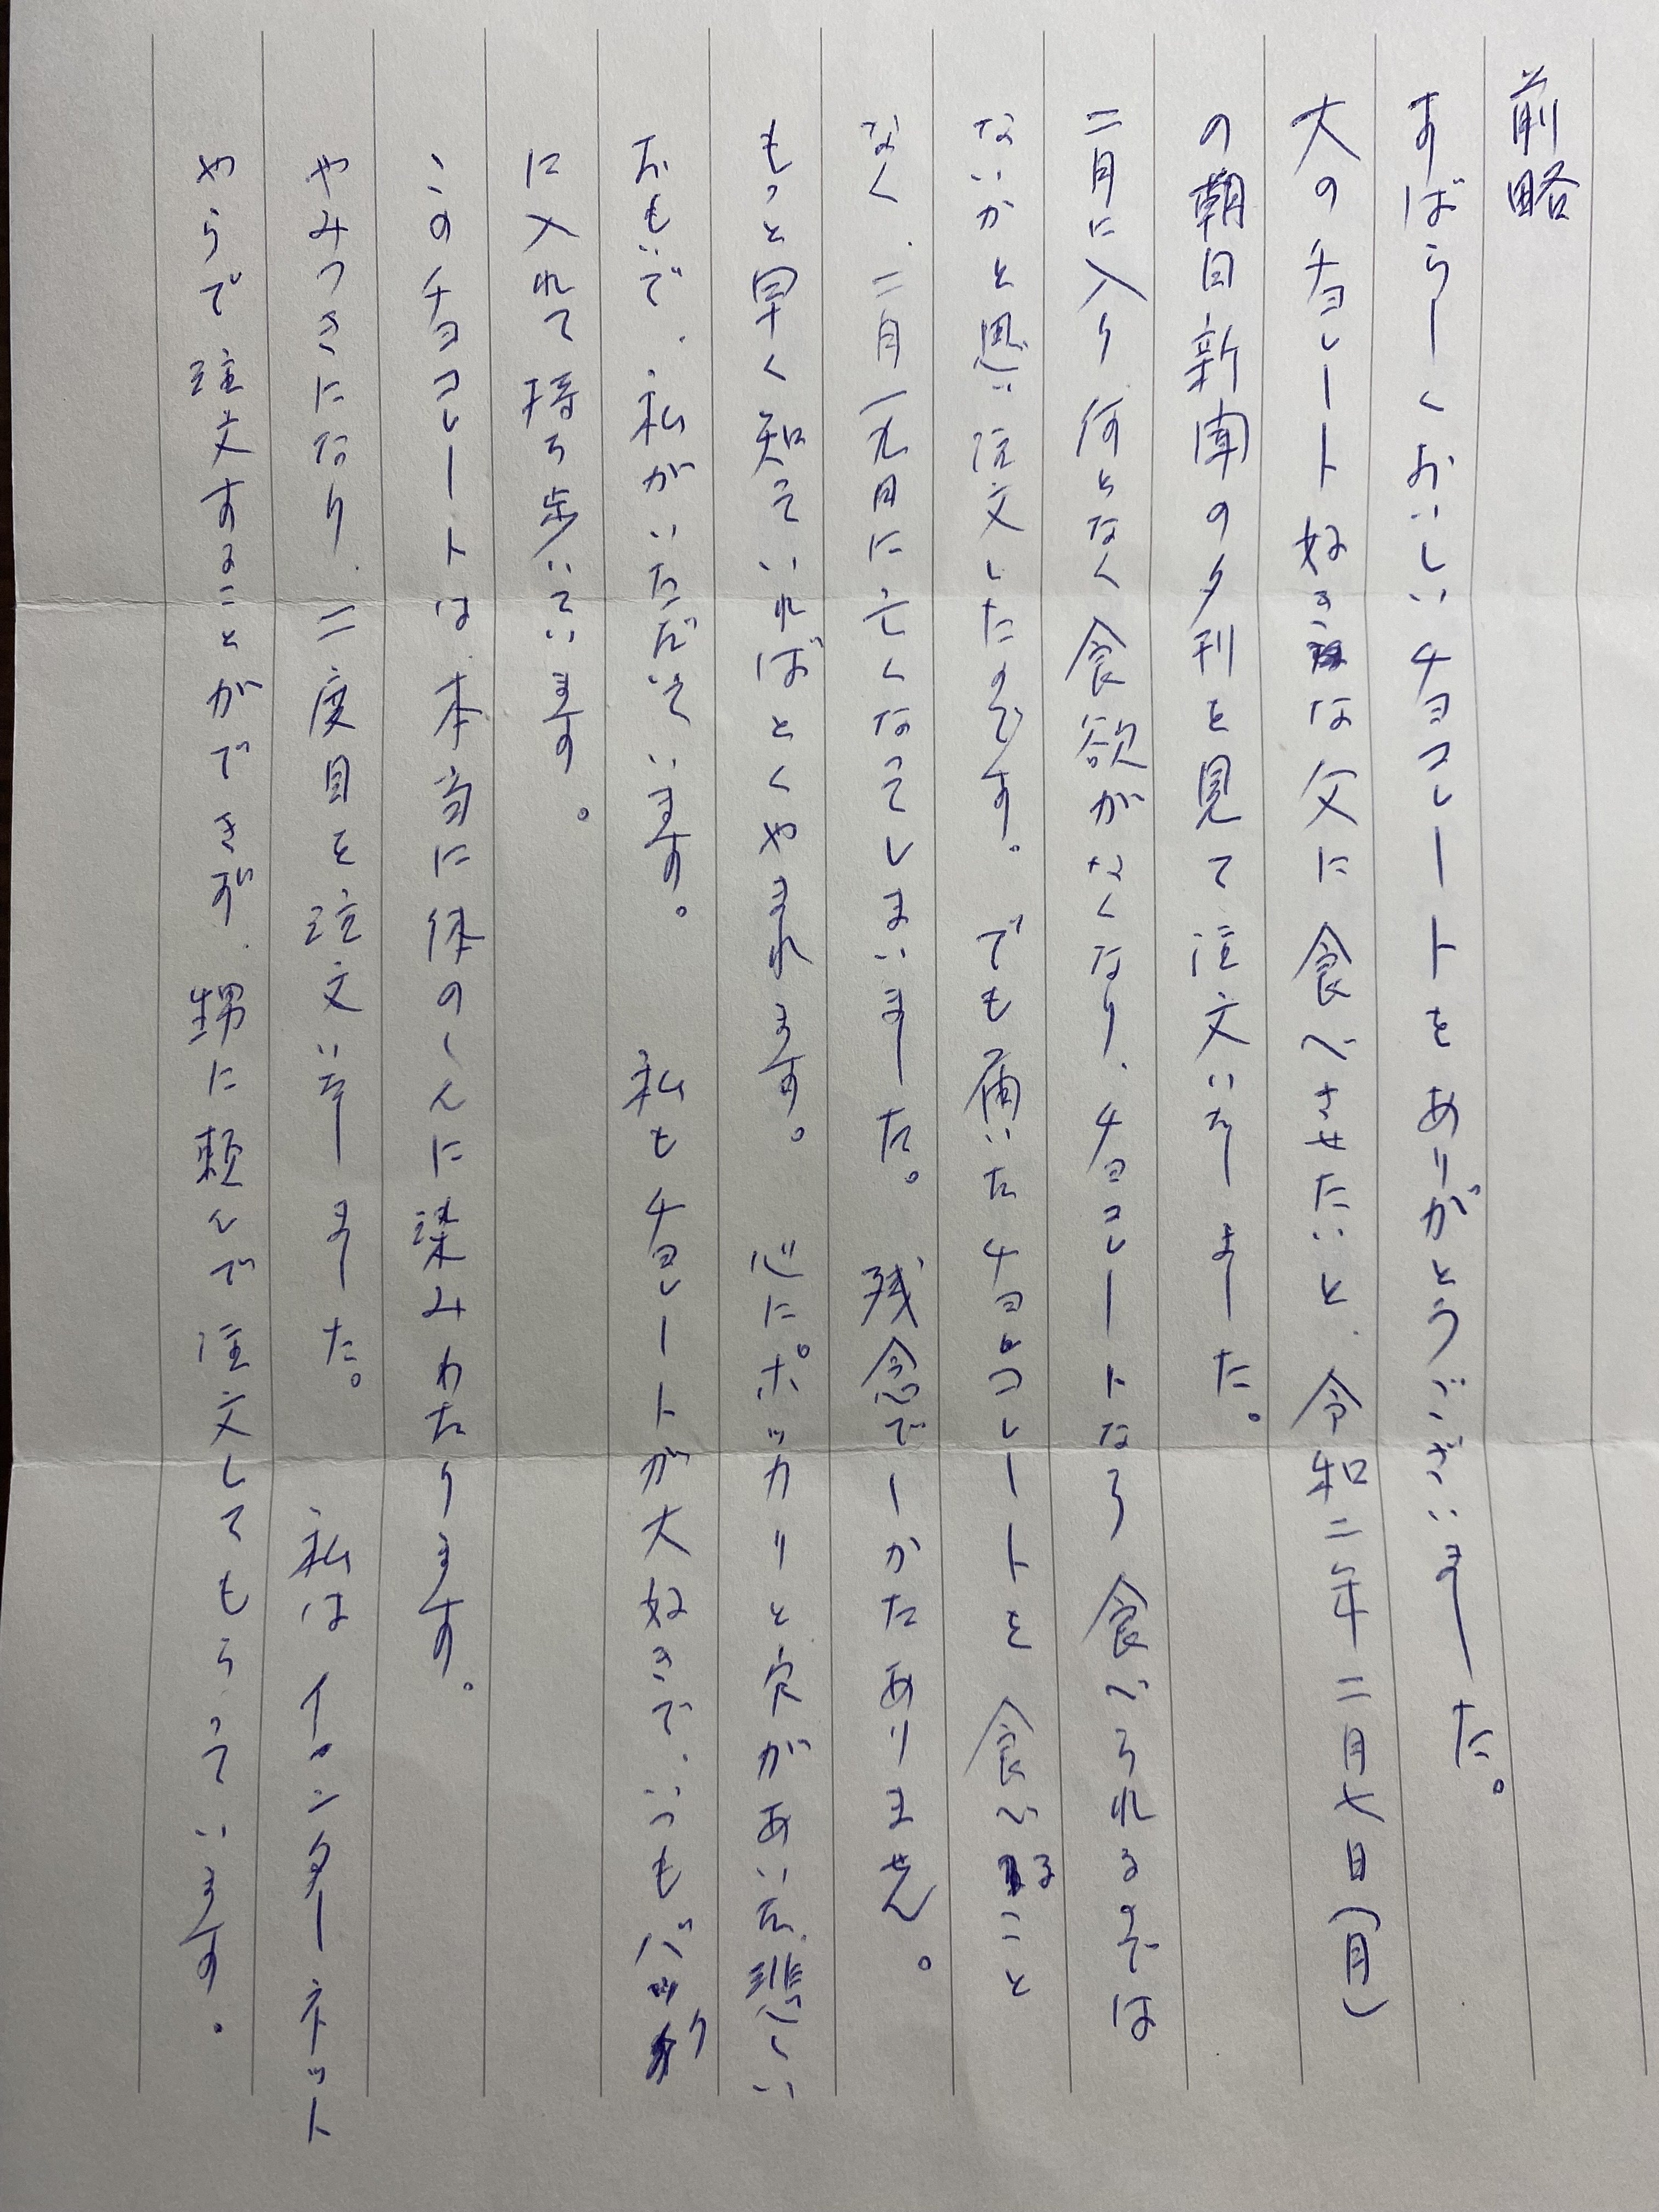 前略
すばらしくおいしいチョコレートをありがとうございました。
大のチョコレート好きな父に食べさせたいと、令和二年二月七日(月)
の朝日新聞の夕刊を見て注文いたしました。
二月に入り何となく食欲がなくなり、チョコレートなら食べられるのでは
ないかと思い注文したのです。でも届いたチョコレートを食べること
なく、二月一九日に亡くなってしまいました。残念でしかたありません。
もっと早く知っていればとくやまれます。心にポッカリと穴があいた悲しい
おもいで、私がいただいています。私もチョコレートが大好きで、いつもバック
に入れて持ち歩いています。
このチョコレートは本当に体のしんに染みわたります。
やみつきになり、二度目を注文いたしました。私はインターネット
やらで注文することができず、甥に頼んで注文してもらっています。